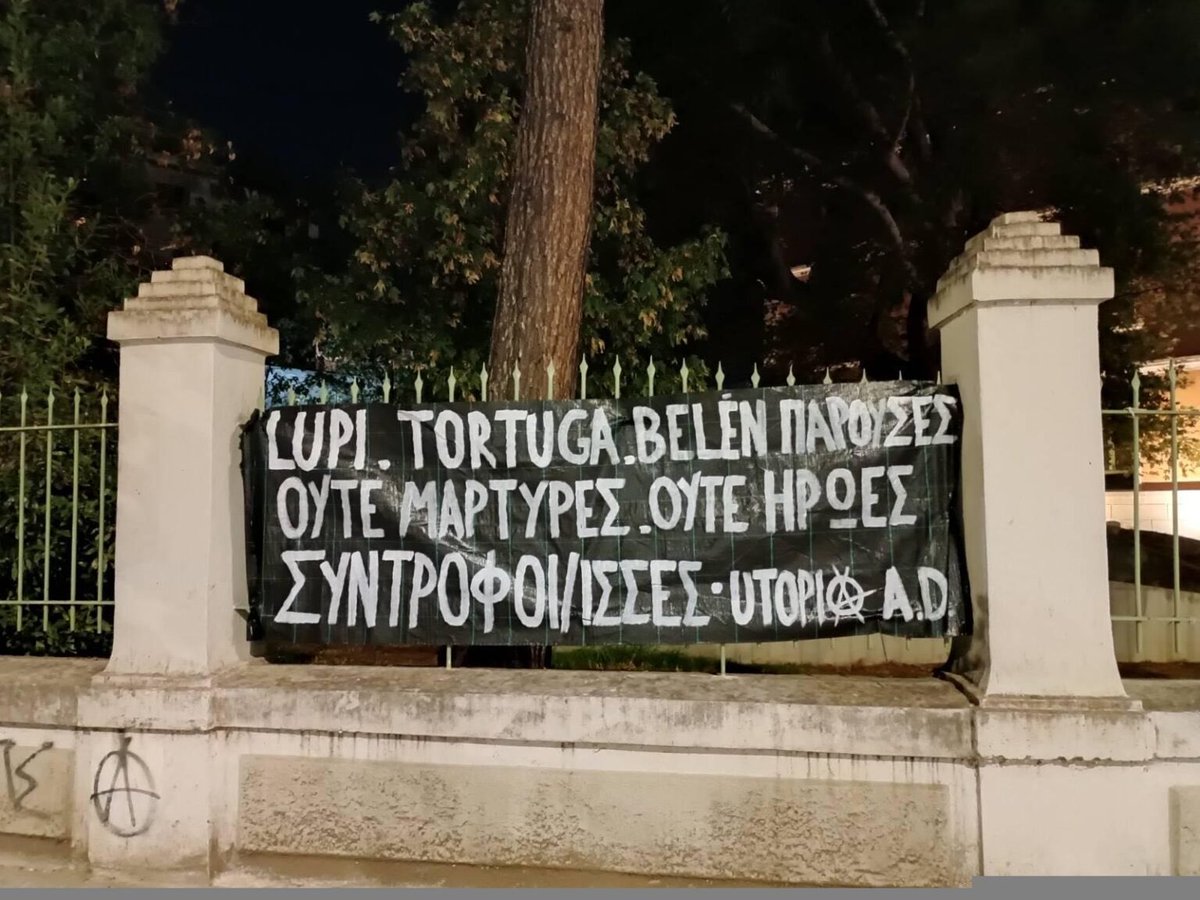 LUPI. TORTUGA. BELÉN ΠΑΡΟΥΣΕΣ
ΟΥΤΕ ΜΑΡΤΥΡΕΣ. ΟΥΤΕ ΗΡΩΕΣ
ΣΥΝΤΡΟΦΟΙ/ΙΣΣΕΣ · UTOPIA A.D